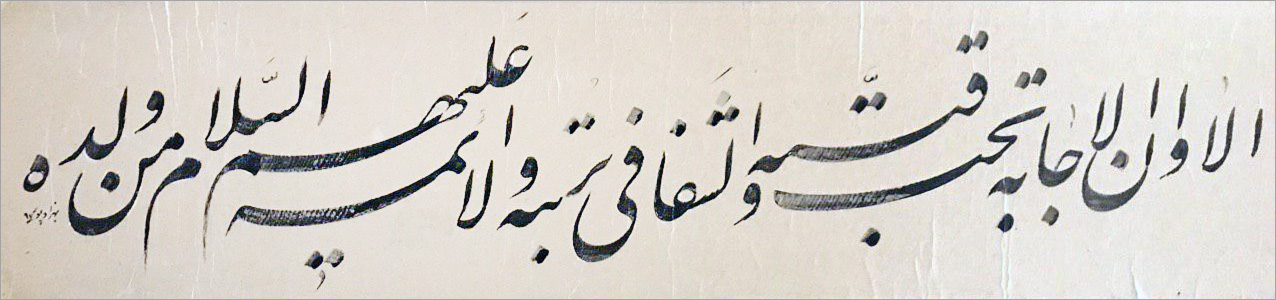 الا وان الاجابه تحت قبته والشفا فی تربته والائمه علیهم السلام من ولده